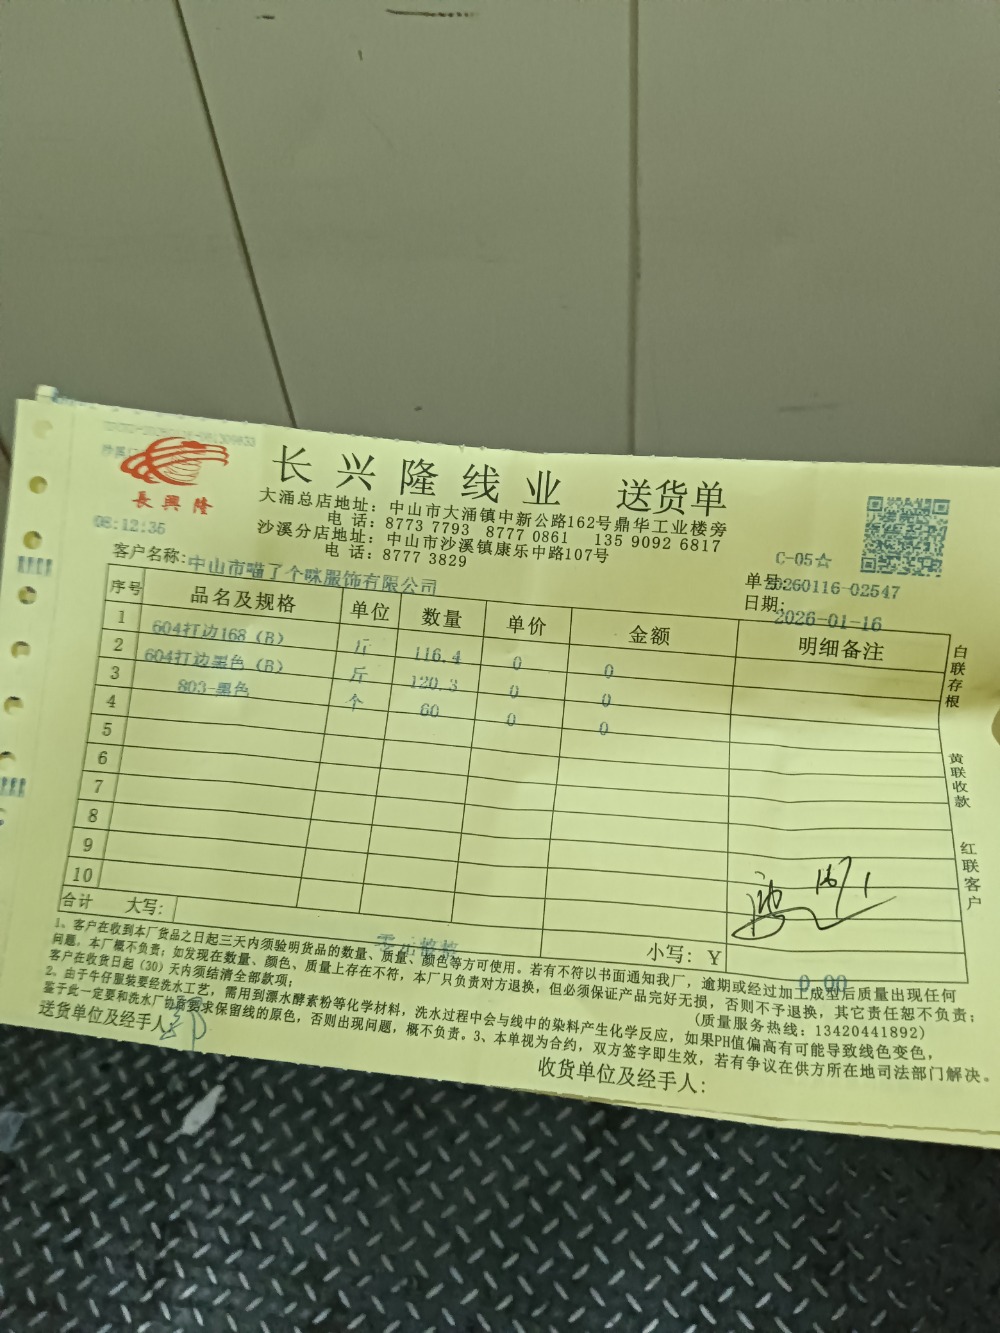 長興隆
长兴隆线业 送货单
大涌总店地址：中山市大涌镇中新公路162号鼎华工业楼旁
电 话：8773 7793 8777 0861 135 9092 6817
沙溪分店地址：中山市沙溪镇康乐中路107号
电 话：8777 3829
08:12:35
C-05☆
客户名称：中山市喵了个咪服饰有限公司
单号：20260116-02547
日期：2026-01-16
序号 品名及规格 单位 数量 单价 金额 明细备注
1 604打边168（B） 斤 116.4 0 0
2 604打边黑色（B） 斤 120.3 0 0
3 803-黑色 个 60 0 0
4
5
6
7
8
9
10
16/1
合计 大写： 零元整整 小写：Y 0.00
1、客户在收到本厂货品之日起三天内须验明货品的数量、质量、颜色等方可使用。若有不符以书面通知我厂，逾期或经过加工成型后质量出现任何
问题。本厂概不负责；如发现在数量、颜色、质量上存在不符，本厂只负责对方退换，但必须保证产品完好无损，否则不予退换，其它责任恕不负责；
客户在收货日起（30）天内须结清全部款项； （质量服务热线：13420441892）
2、由于牛仔服装要经洗水工艺，需用到漂水酵素粉等化学材料，洗水过程中会与线中的染料产生化学反应，如果PH值偏高有可能导致线色变色，
鉴于此一定要和洗水厂协商要求保留线的原色，否则出现问题，概不负责。3、本单视为合约，双方签字即生效，若有争议在供方所在地司法部门解决。
送货单位及经手人：
收货单位及经手人：
白联存根
黄联收款
红联客户